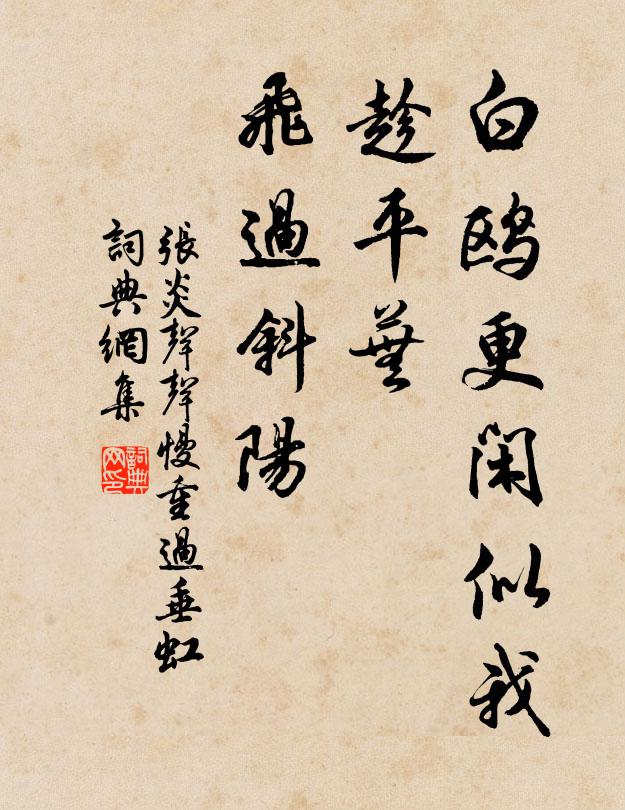 白鷗更閑似我
趁平蕪
飛過斜陽
張炎聲聲慢重過垂虹
詞典網集
詞典网印